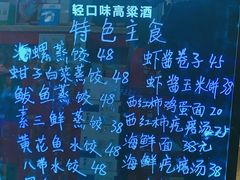 轻口味高粱酒
特色主食
海螺蒸饺 48
蚶子白菜蒸饺 48
鲅鱼蒸饺 48
素三鲜蒸饺 38
黄花鱼水饺 48
八带水饺 48
虾酱卷子 45
虾酱玉米饼 38
西红柿鸡蛋面 20
西红柿疙瘩汤 25
海鲜面 38元
海鲜疙瘩汤 38